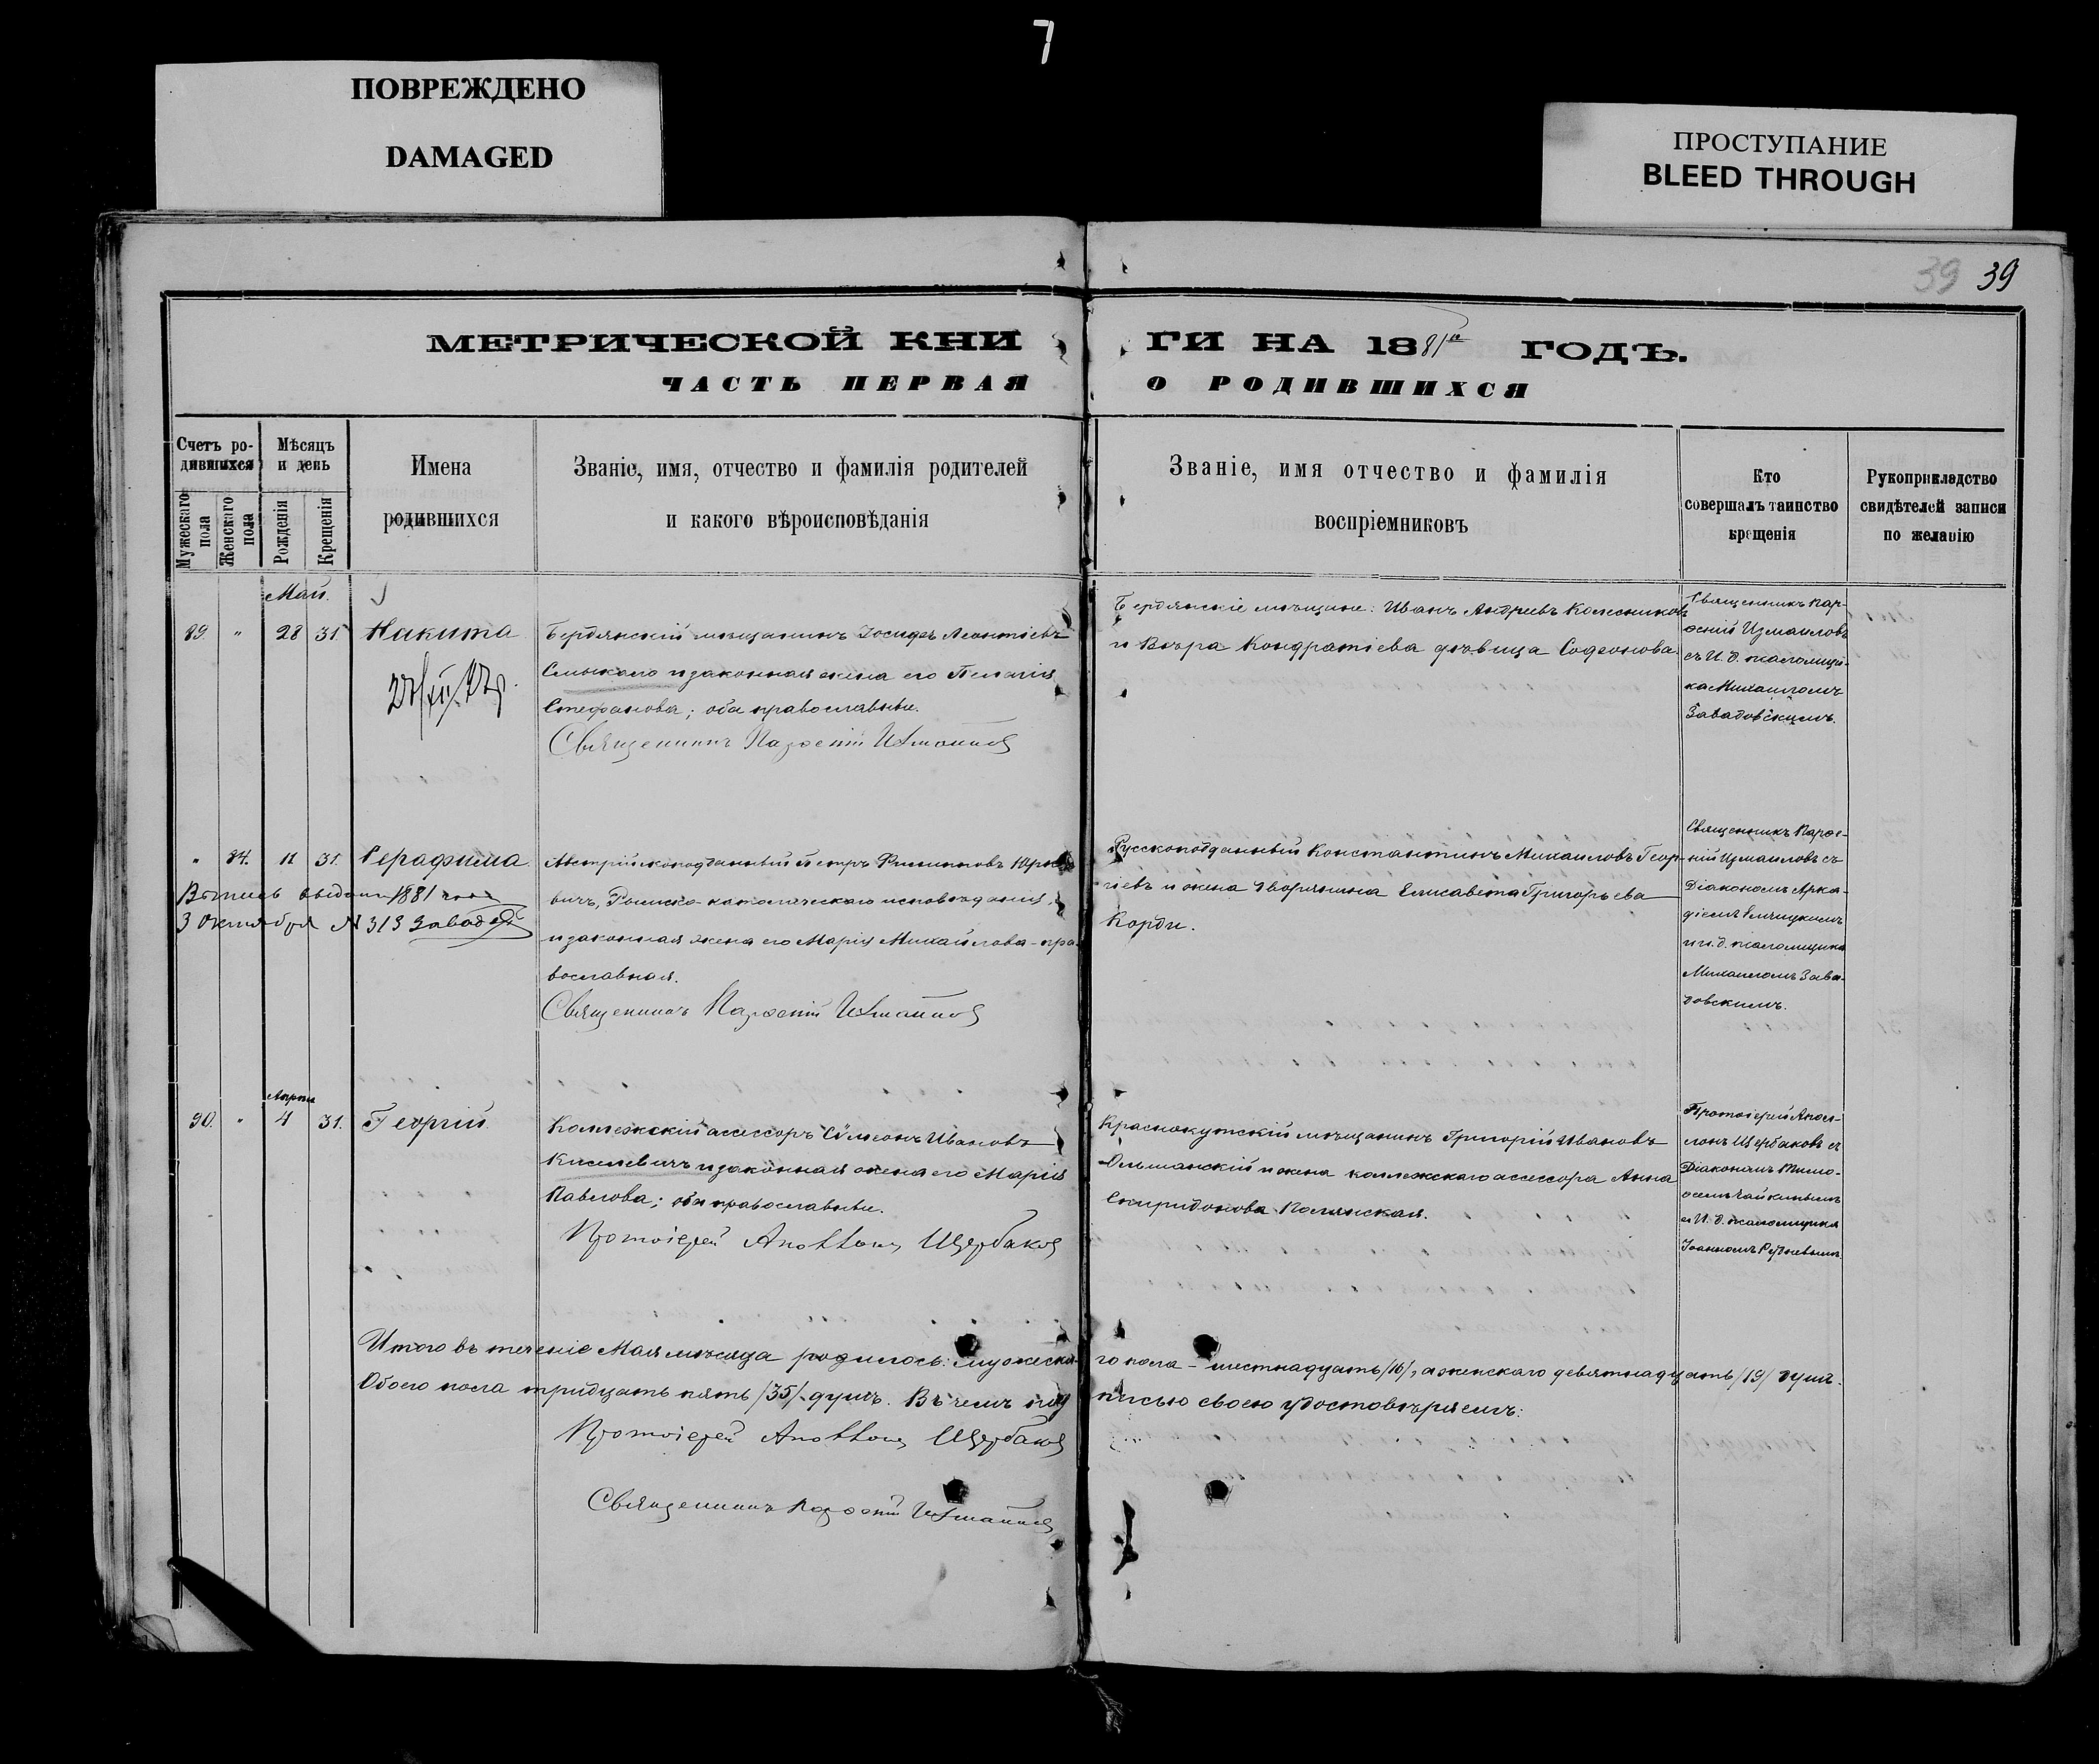 7
ПОВРЕЖДЕНО
DAMAGED
ПРОСТУПАНИЕ
BLEED THROUGH
39 39
МЕТРИЧЕСКОЙ КНИГИ НА 1881 ГОДЪ.
ЧАСТЬ ПЕРВАЯ О РОДИВШИХСЯ
Счетъ родившихся
Мужескаго пола
Женскаго пола
Мѣсяцъ и день
Рожденія
Крещенія
Имена
родившихся
Званіе, имя, отчество и фамилія родителей
и какого вѣроисповѣданія
Званіе, имя отчество и фамилія
воспріемниковъ
Кто
совершалъ таинство
крещенія
Рукоприкладство
свидѣтелей записи
по желанію
Май.
89. " 28 31 Никита
Бердянскій мѣщанинъ Іосифъ Леонтіевъ
и законная жена его Пелагія
Стефанова; оба православные.
Священникъ Парѳеній Измаиловъ
Бердянскіе мѣщане: Иванъ Андреевъ Колесниковъ
и Вѣра Кондратіева дѣвица Софронова.
Священникъ Пар-
ѳеній Измаиловъ
съ И. д. псаломщи-
ка Михаиломъ
Завадовскимъ.
" 84. 11 31. Серафима
Выпись выдана 1881 года
3 Октября № 313
Австрійскоподданный Петръ Филипповъ
вичъ, Римско-католическаго исповѣданія,
и законная жена его Марія Михайлова - пра-
вославная.
Священникъ Парѳеній Измаиловъ
Русскоподданный Константинъ Михаиловъ Геор-
гіевъ и жена дворянина Елисавета Григорьева
Корди.
Священникъ Парѳе-
ній Измаиловъ съ
Діакономъ Арка-
діемъ
и и. д. псаломщика
Михаиломъ Зава-
довскимъ.
Апрѣля
90. " 4 31. Георгій.
Коллежскій ассесоръ Сѷмеонъ Ивановъ
Киселевичъ и законная жена его Марія
Павлова; оба православные.
Протоіерей Аполлонъ Щербаковъ
Краснокутскій мѣщанинъ Григорій Ивановъ
Ольшанскій и жена коллежскаго ассесора Анна
Спиридонова Полянская.
Протоіерей Апол-
лонъ Щербаковъ съ
Діакономъ Тимо-
ѳеемъ Чайкинымъ
и И. д. псаломщика
Іоанномъ Рудневымъ.
Итого въ теченіе Мая мѣсяца родилось: мужеска-го пола - шестнадцать /16/, а женскаго девятнадцать /19/ душъ.
Обоего пола тридцать пять /35/ душъ. Въ чемъ подписью своею удостовѣряемъ:
Протоіерей Аполлонъ Щербаковъ
Священникъ Парѳеній Измаиловъ